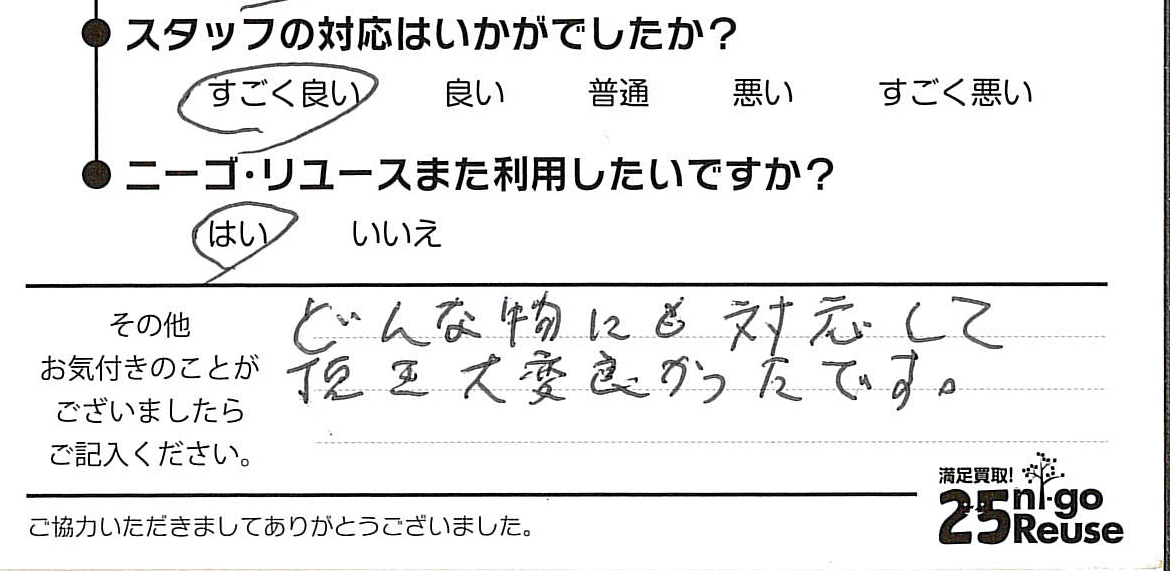 スタッフの対応はいかがでしたか？
すごく良い 良い 普通 悪い すごく悪い
ニーゴ・リユースまた利用したいですか？
はい いいえ
その他
お気付きのことが
ございましたら
ご記入ください。
どんな物にも対応して
頂き大変良かったです。
満足買取!
25 ni-go
Reuse
ご協力いただきましてありがとうございました。